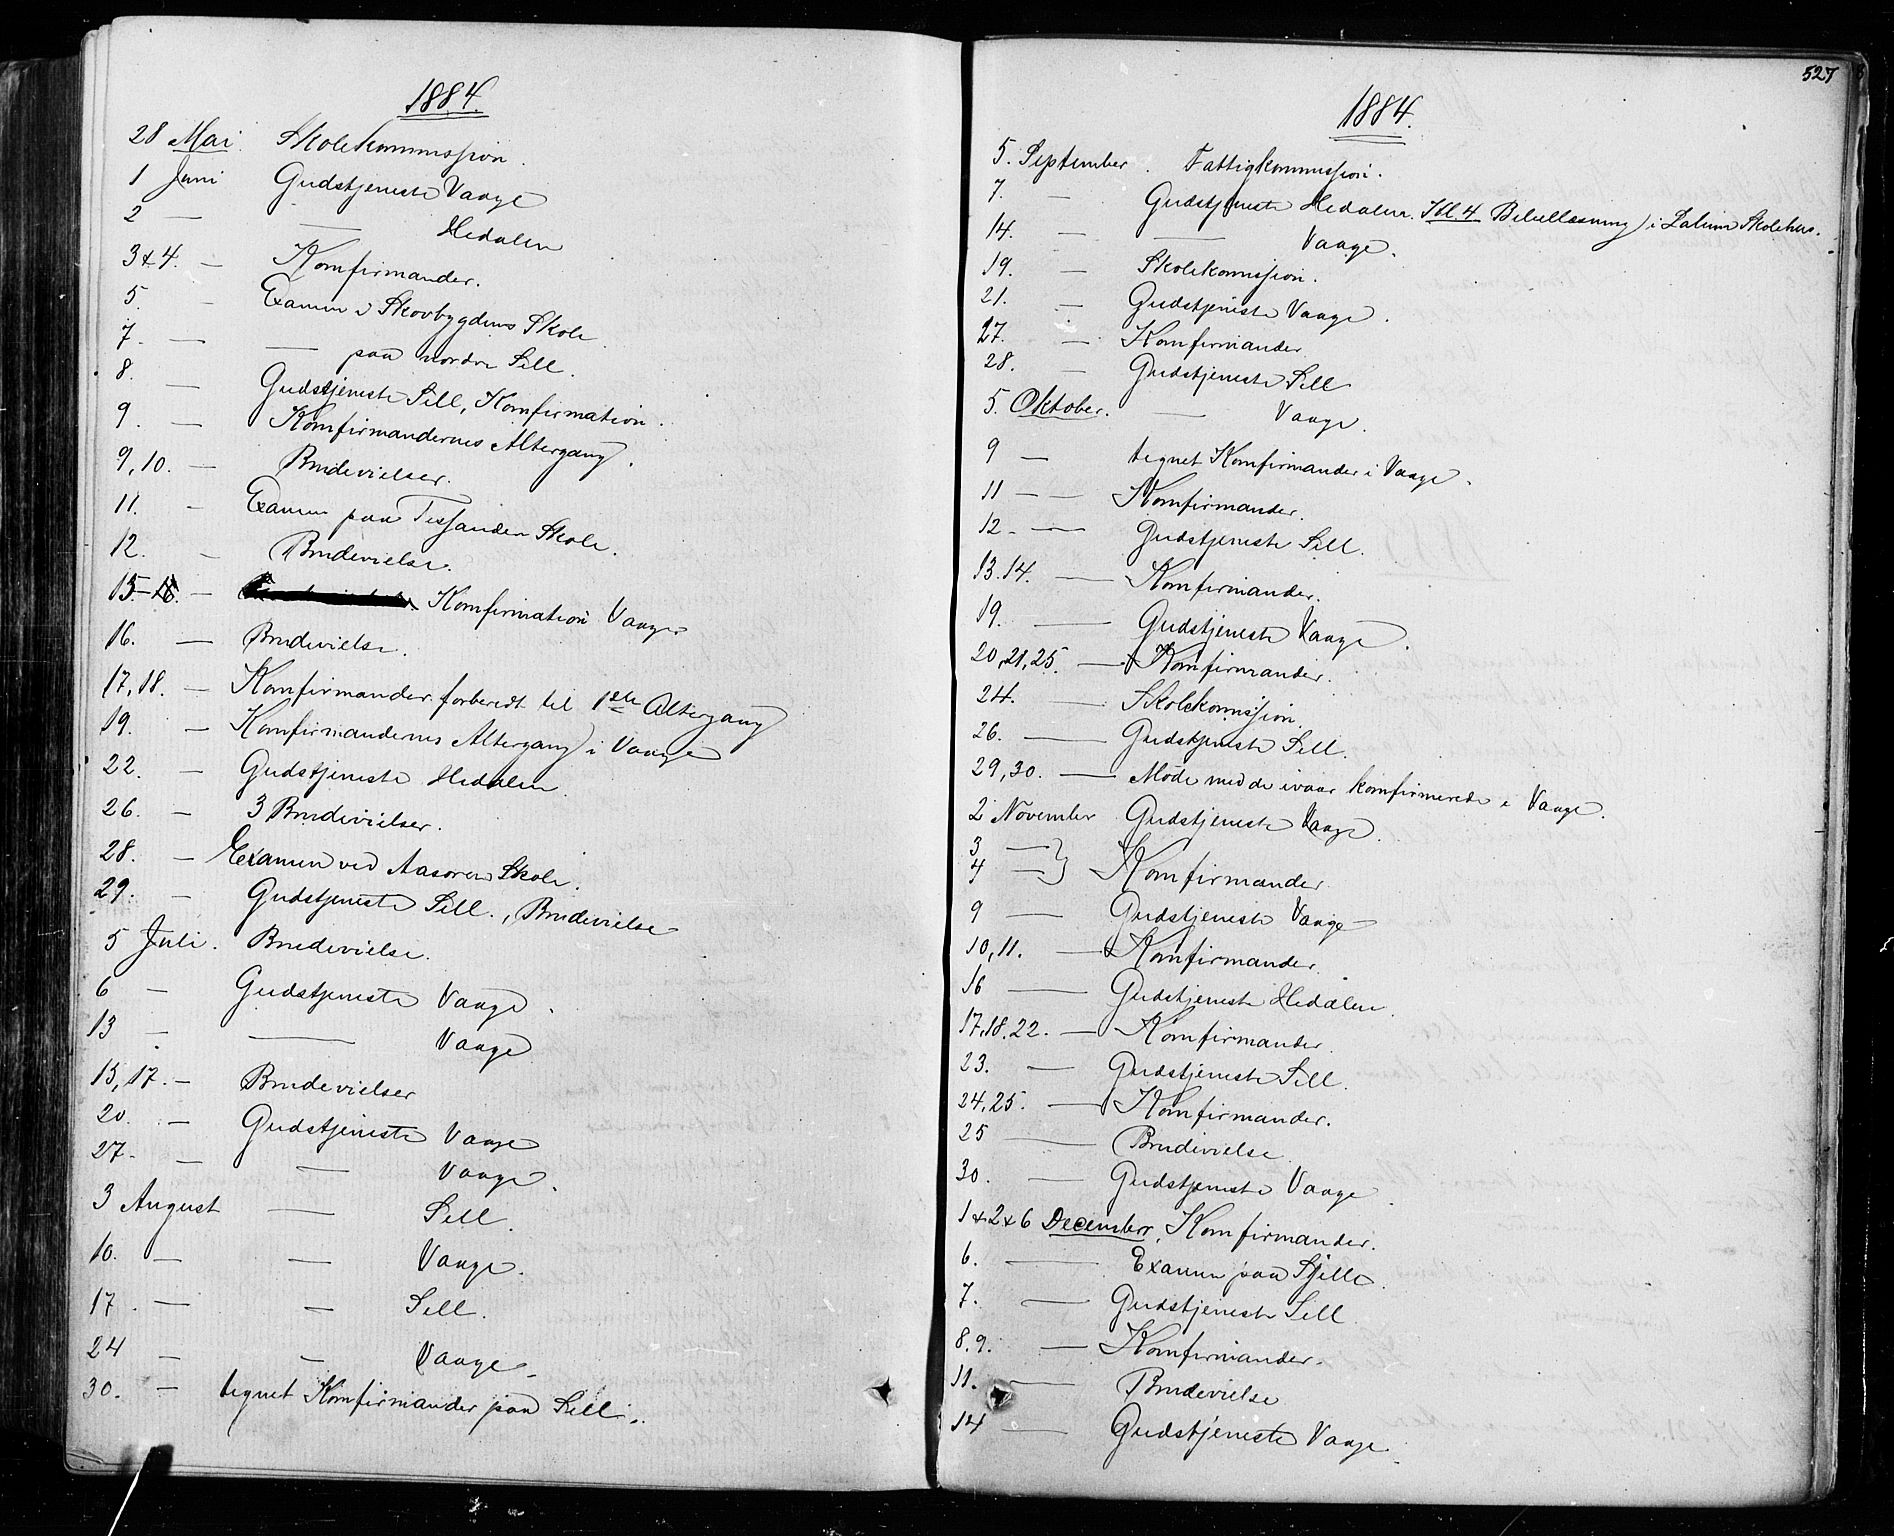 1884.
28 Mai. Skolekommission.
1 Juni Gudstjeneste Vaage
2 — — Hedalen
3 & 4. — Komfirmander.
5. — Examen i Skovbygdens Skole.
7. — — paa nordre Sell.
8. — Gudstjeneste Sell, Komfirmation.
9. — Komfirmandernes Altergang.
9, 10. — Brudevielser.
11. — Examen paa Tessanden Skole.
12. — Brudevielse.
15. — Komfirmation Vaage
16. — Brudevielse.
17, 18. — Komfirmander forberedt til 1ste Altergang
19. — Komfirmandernes Altergang i Vaage
22. — Gudstjeneste Hedalen.
26. — 3 Brudevielser.
28. — Examen ved Aasorens Skole.
29. — Gudstjeneste Sell., Brudevielse
5 Juli. Brudevielse.
6 — Gudstjeneste Vaage.
13 — — Vaage
15, 17. — Brudevielser
20. — Gudstjeneste Vaage
27. — — Vaage.
3 August — Sell.
10. — — Vaage.
17. — — Sell.
24 — — Vaage.
30. — tegnet Komfirmander paa Sell.
527
1884.
5. September. Fattigkommission.
7. — Gudstjeneste Hedalen. Kl. 4 Bibellæsning i Lalum Skolehus.
14. — — Vaage.
19. — Skolekomission.
21. — Gudstjeneste Vaage.
27. — Komfirmander
28. — Gudstjeneste Sell
5. Oktober. — Vaage.
9 — tegnet Komfirmander i Vaage.
11 — — Komfirmander.
12 — — Gudstjeneste Sell.
13. 14. — Komfirmander.
19. — Gudstjeneste Vaage.
20, 21, 25. — Komfirmander.
24. — Skolekomission.
26. — Gudstjeneste Sell.
29, 30. — Møde med de ivaar komfirmerede i Vaage.
2 November Gudstjeneste Vaage.
3 —
4 — } Komfirmander.
9 — Gudstjeneste Vaage
10, 11. — Komfirmander.
16 — Gudstjeneste Hedalen.
17, 18. 22. — Komfirmander.
23. — Gudstjeneste Sell.
24, 25. — Komfirmander.
25 — Brudevielse
30. — Gudstjeneste Vaage.
1 & 2 & 6 December, Komfirmander.
6. — Examen paa Sjelle.
7. — Gudstjeneste Sell
8. 9. — Komfirmander.
11. — Brudevielse
14 — Gudstjeneste Vaage.